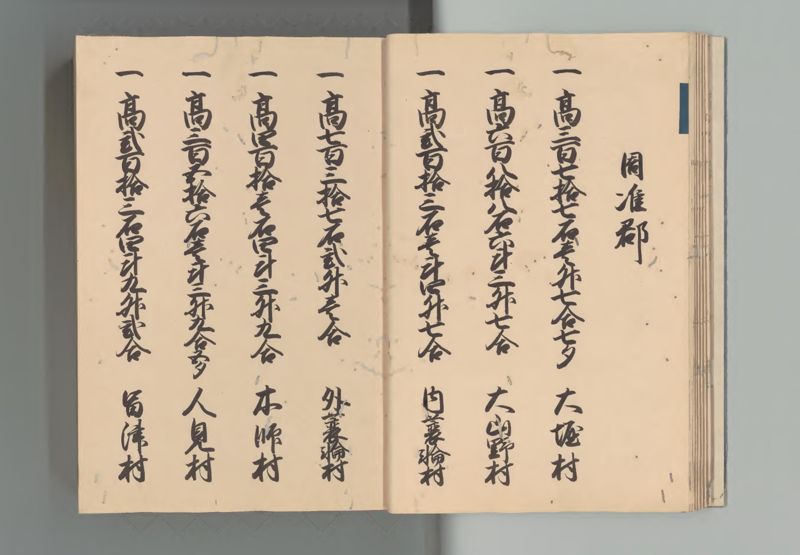 周准郡
一高三百七拾七石壱升七合七夕 大堀村
一高六百八拾八石六斗三升七合 大野村
一高弐百拾三石壱斗四升七合 内蓑輪村
一高七百三拾七石弐升壱合 外蓑輪村
一高四百拾壱石四斗三升九合 木師村
一高三百五拾六石壱斗三升九合五夕 人見村
一高弐百拾三石四斗九升弐合 冨津村